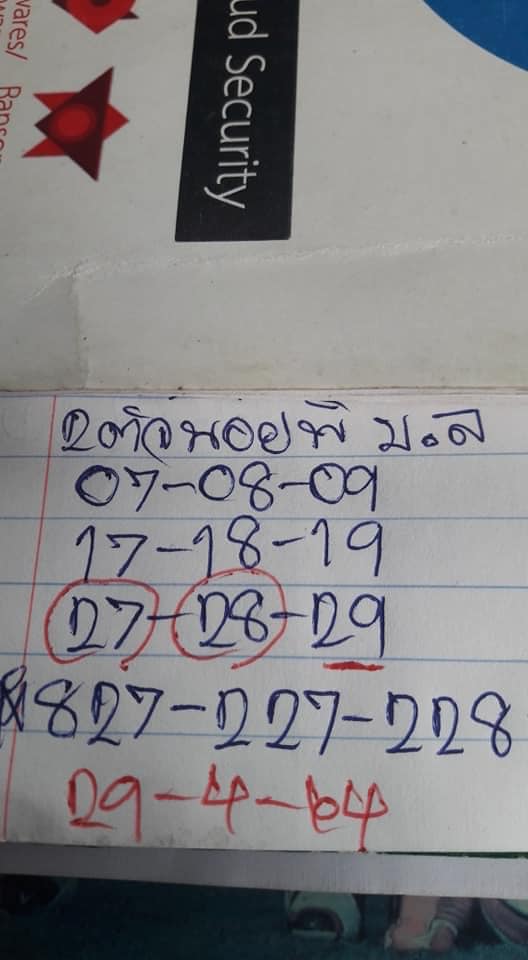 ud Security
wares/
Ranso
2ตัวนอยพี ม.ล
07-08-09
17-18-19
27-28-29
827-227-228
29-4-64